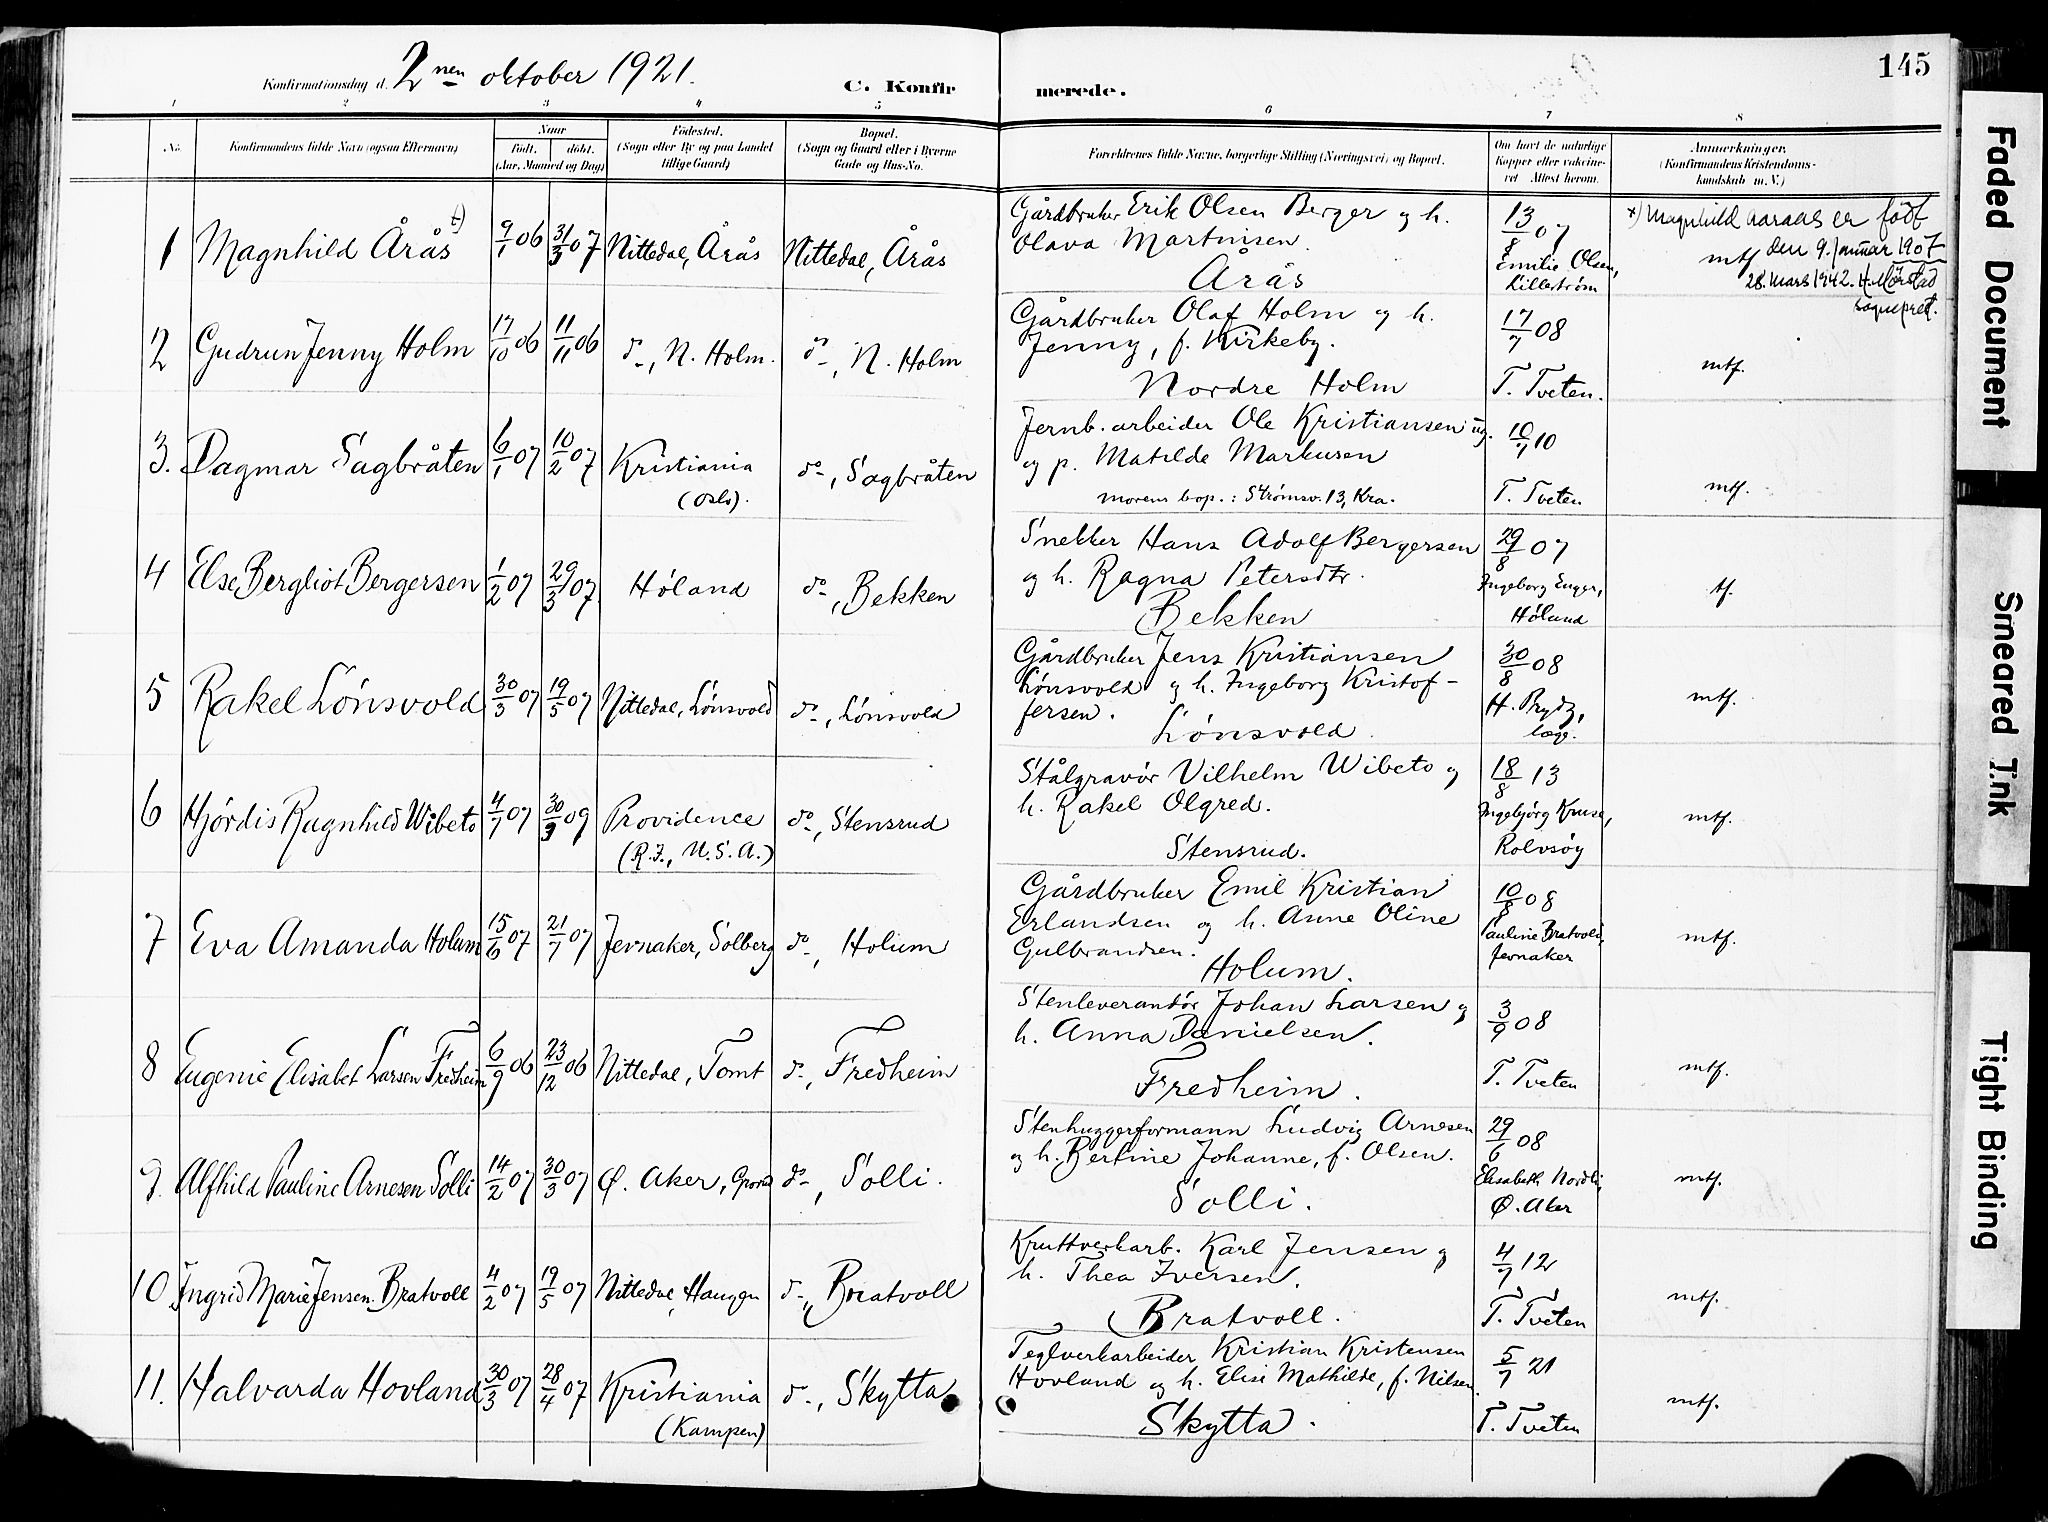 145
Konfirmationsdag d. 2nen oktober 1921. C. Konfirmerede.
1 2 3 4 5 6 7 8
No.
Konfirmandens fulde Navn (ogsaa Efternavn)
Naar
født. døbt.
(Aar, Maaned og Dag)
Fødested.
(Sogn eller By og paa Landet
tillige Gaard)
Bopæl.
(Sogn og Gaard eller i Byerne
Gade og Hus-No.
Forældrenes fulde Navne, borgerlige Stilling (Næringsvei) og Bopæl.
Om havt de naturlige
Kopper eller vakcine-
ret Attest herom.
Anmærkninger.
(Konfirmandens Kristendoms-
kundskab m. V.)
1 Magnhild Årås x) 9/1 06 31/3 07 Nittedal, Årås Nittedal, Årås
Gårdbruker Erik Olsen Berger og h.
Olava Martinsen.
Årås
13/8 07
Emilie Olsen,
Lillestrøm
mtf
x) Magnhild Aaraas er født
den 9. januar 1907
28. mars 1942. H. Mørstad
sogneprest.
2 Gudrun Jenny Holm 17/10 06 11/11 06 do, N. Holm. do, N. Holm
Gårdbruker Olaf Holm og h.
Jenny, f. Kirkeby.
Nordre Holm
17/7 08
T. Tveten.
mtf.
3. Dagmar Sagbråten 6/1 07 10/2 07 Kristiania
(Oslo).
do, Sagbråten
Jernb. arbeider Ole Kristiansen ug.
og p. Matilde Markusen
morens bop.: Strømsv. 13, Kra.
10/7 10
T. Tveten
mtf.
4 Else Bergliot Bergersen 1/2 07 29/3 07. Høland do, Bekken
Snekker Hans Adolf Bergersen
og h. Ragna Petersdtr.
Bekken
29/8 07
Ingeborg Enger,
Høland
tf.
5 Rakel Lønsvold 30/3 07 19/5 07 Nittedal, Lønsvold do, Lønsvold
Gårdbruker Jens Kristiansen
Lønsvold og h. Ingeborg Kristof-
fersen.
Lønsvold.
30/8 08
H. Prydz,
læge.
mtf.
6 Hjördis Ragnhild Wibeto 4/7 07 30/3 09 Providence
(R.I., U.S.A.)
do, Stensrud
Stålgravør Vilhelm Wibeto og
h. Rakel Olgred.
Stensrud.
18/8 13
Ingebjørg Kruse,
Rolvsøy
mtf.
7 Eva Amanda Holum 15/6 07 21/7 07 Jevnaker, Solberg do, Holum
Gårdbruker Emil Kristian
Erlandsen og h. Anne Oline
Gulbrandsen.
Holum.
10/8 08
Pauline Bratvold,
Jevnaker
mtf.
8 Eugenie Elisabet Larsen Fredheim 6/9 06 23/12 06 Nittedal, Tomt do, Fredheim
Stenleverandør Johan Larsen og
h. Anna Danielsen.
Fredheim.
3/9 08
T. Tveten
mtf.
9. Alfhild Pauline Arnesen Solli 14/2 07 30/3 07 Ø. Aker, do, Solli.
Stenhuggerformann Ludvig Arnesen
og h. Bertine Johanne, f. Olsen.
Solli.
29/6 08
Elisabeth Nordli,
Ø. Aker
mtf.
10 Ingrid Marie Jensen Bratvoll 4/2 07 19/5 07 Nittedal, Haugen do, Bratvoll
Kruttverkarb. Karl Jensen og
h. Thea Iversen.
Bratvoll.
4/7 12
T. Tveten
mtf.
11. Halvarda Hovland 30/3 07 28/4 07 Kristiania
(Kampen)
do, Skytta
Teglverkarbeider Kristian Kristensen
Hovland og h. Elise Mathilde, f. Nilsen.
Skytta.
5/7 21
T. Tveten
mtf.
Faded Document
Smeared Ink
Tight Binding